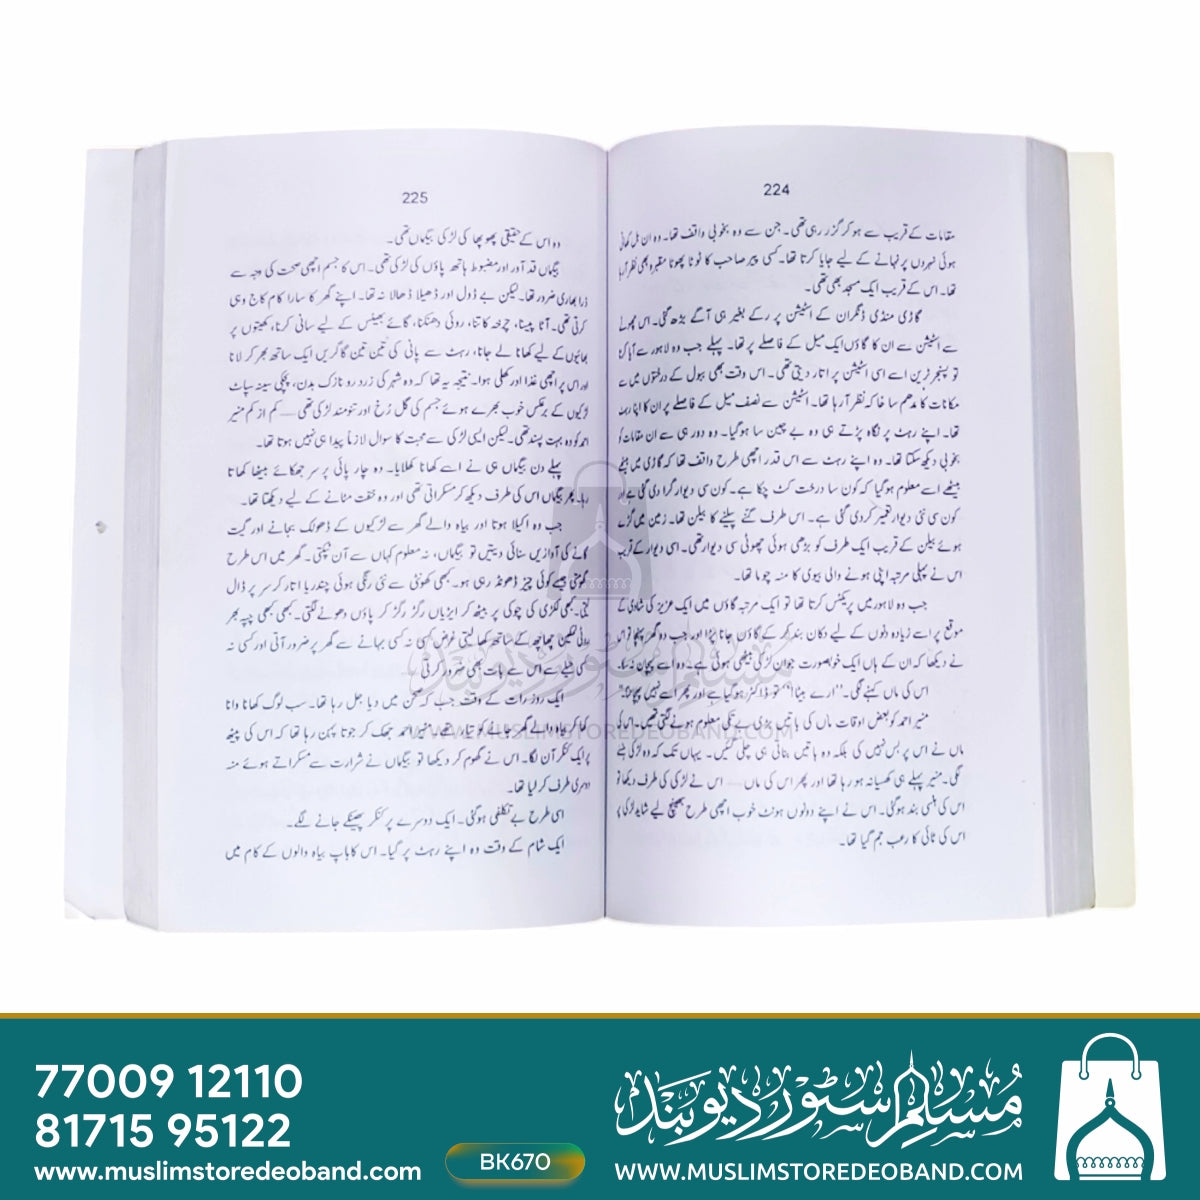 224
مقامات کے قریب سے ہو کر گزر رہی تھی۔ جن سے وہ بخوبی واقف تھا۔ وہ ان بل کھاتی
ہوئی نہروں پر نہانے کے لیے جایا کرتا تھا۔ کسی پیر صاحب کا ٹوٹا پھوٹا مقبرہ بھی نظر آ رہا
تھا۔ اس کے قریب ایک مسجد بھی تھی۔
گاڑی منڈی ڈنگراں کے اسٹیشن پر رکے بغیر ہی آگے بڑھ گئی۔ اس چھوٹے
سے اسٹیشن سے ان کا گاؤں ایک میل کے فاصلے پر تھا۔ پہلے جب وہ لاہور سے آیا کرتا
تو پسنجر ٹرین اسے اسی اسٹیشن پر اتار دیتی تھی۔ اس وقت بھی ببول کے درختوں میں سے
مکانات کا مدھم سا خاکہ نظر آ رہا تھا۔ اسٹیشن سے نصف میل کے فاصلے پر ان کا اپنا رہٹ
تھا۔ اپنے رہٹ پر نگاہ پڑتے ہی وہ بے چین سا ہو گیا۔ وہ دور ہی سے ان مقامات کو
بخوبی دیکھ سکتا تھا۔ وہ اپنے رہٹ سے اس قدر اچھی طرح واقف تھا کہ گاڑی میں بیٹھے
بیٹھے اسے معلوم ہو گیا کہ کون سا درخت کٹ چکا ہے۔ کون سی دیوار گرا دی گئی ہے اور
کون سی نئی دیوار تعمیر کر دی گئی ہے۔ اس طرف گنے پیلنے کا بیلن تھا۔ زمین میں گڑے
ہوئے بیلن کے قریب ایک طرف کو بڑھی ہوئی چھوٹی سی دیوار تھی۔ اسی دیوار کے قریب
اس نے پہلی مرتبہ اپنی ہونے والی بیوی کا منہ چوما تھا۔
جب وہ لاہور میں پریکٹس کرتا تھا تو ایک مرتبہ گاؤں میں ایک عزیز کی شادی کے
موقع پر اسے زیادہ دنوں کے لیے دکان بند کر کے گاؤں جانا پڑا اور جب وہ گھر پہنچا تو اس
نے دیکھا کہ ان کے ہاں ایک خوبصورت جوان لڑکی بیٹھی ہوئی ہے۔ وہ اسے پہچان نہ سکا۔
اس کی ماں کہنے لگی۔ ''ارے بیٹا'' تو ڈاکٹر ہو گیا ہے اور پھر اسے نہیں پہچانا؟''
منیر احمد کو بعض اوقات ماں کی باتیں بڑی بے تکی معلوم ہونے لگتی تھیں۔ اس کی
ماں نے اس پر بس نہیں کی بلکہ وہ باتیں بناتی ہی چلی گئیں۔ یہاں تک کہ وہ لڑکی ہنسنے
لگی۔ منیر پہلے ہی کھسیانہ ہو رہا تھا اور پھر اس کی ماں — اس نے لڑکی کی طرف دیکھا تو
اس کی ہنسی بند ہو گئی۔ اس نے اپنے دونوں ہونٹ خوب اچھی طرح بھینچ لیے شاید لڑکی پر
اس کی ٹائی کا رعب جم گیا تھا۔
225
وہ اس کے حقیقی پھوپھا کی لڑکی بیگماں تھی۔
بیگماں قد آور اور مضبوط ہاتھ پاؤں کی لڑکی تھی۔ اس کا جسم اچھی صحت کی وجہ سے
ذرا بھاری ضرور تھا۔ لیکن بے ڈول اور ڈھیلا ڈھالا نہ تھا۔ اپنے گھر کا سارا کام کاج وہی
کرتی تھی۔ آٹا پیسنا، چرخہ کاتنا، روئی دھنکنا، گائے بھینس کے لیے سانی کرنا، کھیتوں پر
بھائیوں کے لیے کھانا لے جانا، رہٹ سے پانی کی تین تین گاگریں ایک ساتھ بھر کر لانا
اور اس پر اچھی غذا اور کھلی ہوا۔ نتیجہ یہ تھا کہ وہ شہر کی زرد رو نازک بدن، پچکی سینہ سپاٹ
لڑکیوں کے برعکس خوب بھرے ہوئے جسم کی گل رخ اور تنومند لڑکی تھی — کم از کم منیر
احمد کو وہ بہت پسند تھی۔ لیکن ایسی لڑکی سے محبت کا سوال لازماً پیدا ہی نہیں ہوتا تھا۔
پہلے دن بیگماں ہی نے اسے کھانا کھلایا۔ وہ چار پائی پر سر جھکائے بیٹھا کھاتا
رہا۔ پھر بیگماں اس کی طرف دیکھ کر مسکراتی تھی اور وہ خفت مٹانے کے لیے دیکھتا تھا۔
جب وہ اکیلا ہوتا اور بیاہ والے گھر سے لڑکیوں کے ڈھولک بجانے اور گیت
گانے کی آوازیں سنائی دیتیں تو بیگماں، نہ معلوم کہاں سے آن ٹپکتی۔ گھر میں اس طرح
گھومتی جیسے کوئی چیز ڈھونڈ رہی ہو۔ کبھی کھونٹی سے نئی رنگی ہوئی چندریا اتار کر سر پر ڈال
لیتی۔ کبھی لکڑی کی چوکی پر بیٹھ کر ایڑیاں رگڑ رگڑ کر پاؤں دھونے لگتی۔ کبھی کبھی چپہ بھر
روٹی نمکین چھاچھ کے ساتھ کھا لیتی غرض کسی نہ کسی بہانے سے گھر پر ضرور آتی اور کسی نہ
کسی حیلے سے اس سے بات بھی ضرور کرتی —
ایک روز رات کے وقت جب کہ صحن میں دیا جل رہا تھا۔ سب لوگ کھانا وانا
کھا کر بیاہ والے گھر جانے کو تیار تھے۔ منیر احمد جھک کر جوتا پہن رہا تھا کہ اس کی پیٹھ
پر ایک کنکر آن لگا۔ اس نے گھوم کر دیکھا تو بیگماں نے شرارت سے مسکراتے ہوئے منہ
دوسری طرف کر لیا تھا۔
اسی طرح بے تکلفی ہو گئی۔ ایک دوسرے پر کنکر پھینکے جانے لگے۔
ایک شام کے وقت وہ اپنے رہٹ پر گیا۔ اس کا باپ بیاہ والوں کے کام میں
مسلم سٹور دیوبند
WWW.MUSLIMSTOREDEOBAND.COM
77009 12110
81715 95122
www.muslimstoredeoband.com
BK670
مسلم سٹور دیوبند
WWW.MUSLIMSTOREDEOBAND.COM